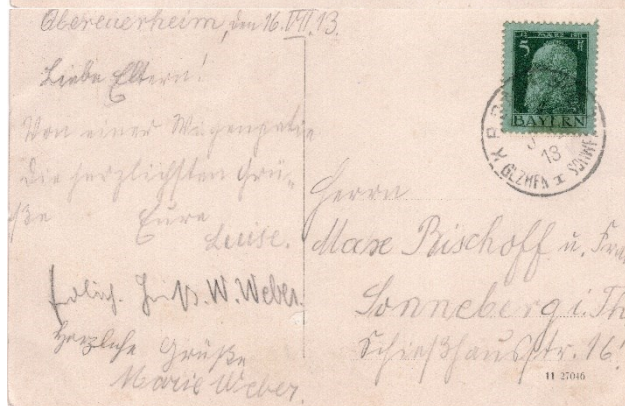 Obereuerheim, den 16. VII. 13.
Liebe Eltern!
Von einer Wagenpartie
die herzlichsten Grü-
ße Eure
Luise.
W. Weber.
Herzliche Grüße
Marie Weber.
Herrn
Max Bischoff u. Fra
Sonneberg i. Th
Schießhausstr. 16
11 27046
5
BAYERN
13